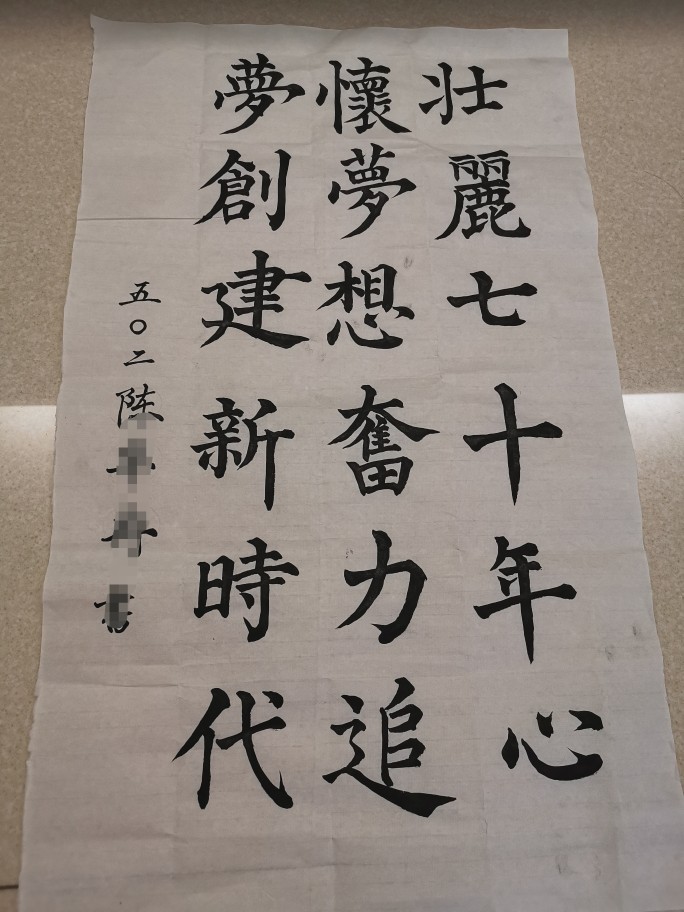 壯麗七十年心
懷夢想奮力追
夢創建新時代
五〇二陈